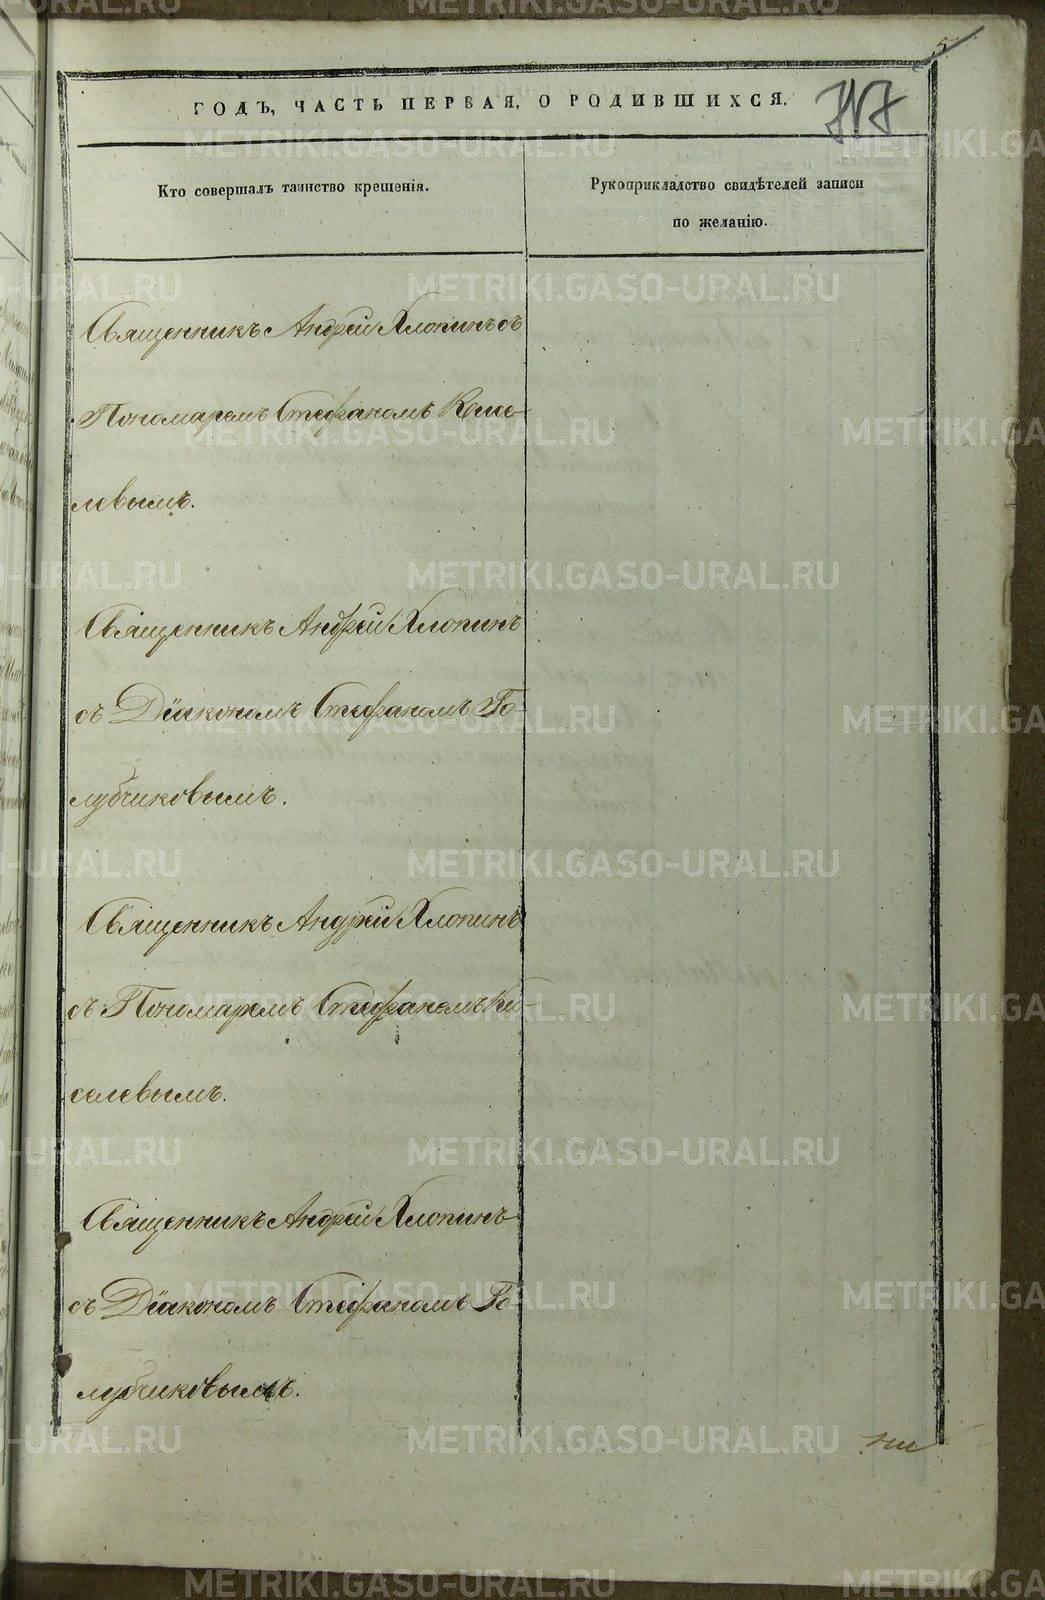 5
ГОДЪ, ЧАСТЬ ПЕРВАЯ, О РОДИВШИХСЯ.
Кто совершалъ таинство крещенія.
Рукоприкладство свидѣтелей записи
по желанію.
Священникъ Андрей Хлопинъ съ
Пономаремъ Стефаномъ
левымъ.
Священникъ Андрей Хлопинъ
съ Діакономъ Стефаномъ Го-
лубчиковымъ.
Священникъ Андрей Хлопинъ
съ Пономаремъ Стефаномъ Ки-
селевымъ.
Священникъ Андрей Хлопинъ
съ Діакономъ Стефаномъ Го-
лубчиковымъ.
METRIKI.GASO-URAL.RU